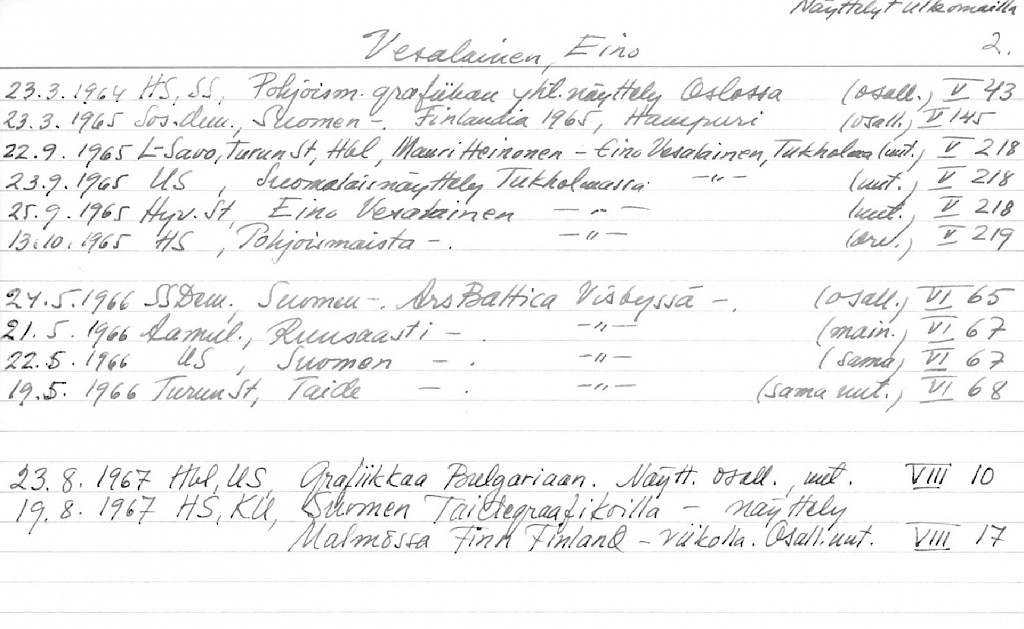 Näyttelyt ulkomailla
Vesalainen, Eino 2.
23.3.1964 HS, SS, Pohjoism. grafiikan yht. näyttely Oslossa (osall.) V 43
23.3.1965 Sos.dem., Suomen -. Finlandia 1965, Hampuri (osall.) V 145
22.9.1965 L-Savo, Turun St, Hbl, Mauri Heinonen - Eino Vesalainen, Tukholma (uut.) V 218
23.9.1965 US, Suomalaisnäyttely Tukholmassa -"- (uut.) V 218
25.9.1965 Hyv. St, Eino Vesalainen -"- (uut.) V 218
13.10.1965 HS, Pohjoismaista -. -"- (arv.) V 219
24.5.1966 SSDem, Suomen -. Ars Baltica Visbyssä -. (osall.) VI 65
21.5.1966 Aamul., Ruusaasti -. -"- (main.) VI 67
22.5.1966 US, Suomen -. -"- (sama) VI 67
19.5.1966 Turun St, Taide -. -"- (sama uut.) VI 68
23.8.1967 Hbl, US, Grafiikkaa Bulgariaan. Näytt. osall., uut. VIII 10
19.8.1967 HS, KU, Suomen Taidegraafikoilla - näyttely
Malmössa Finn Finland - viikolla. Osall. uut. VIII 17